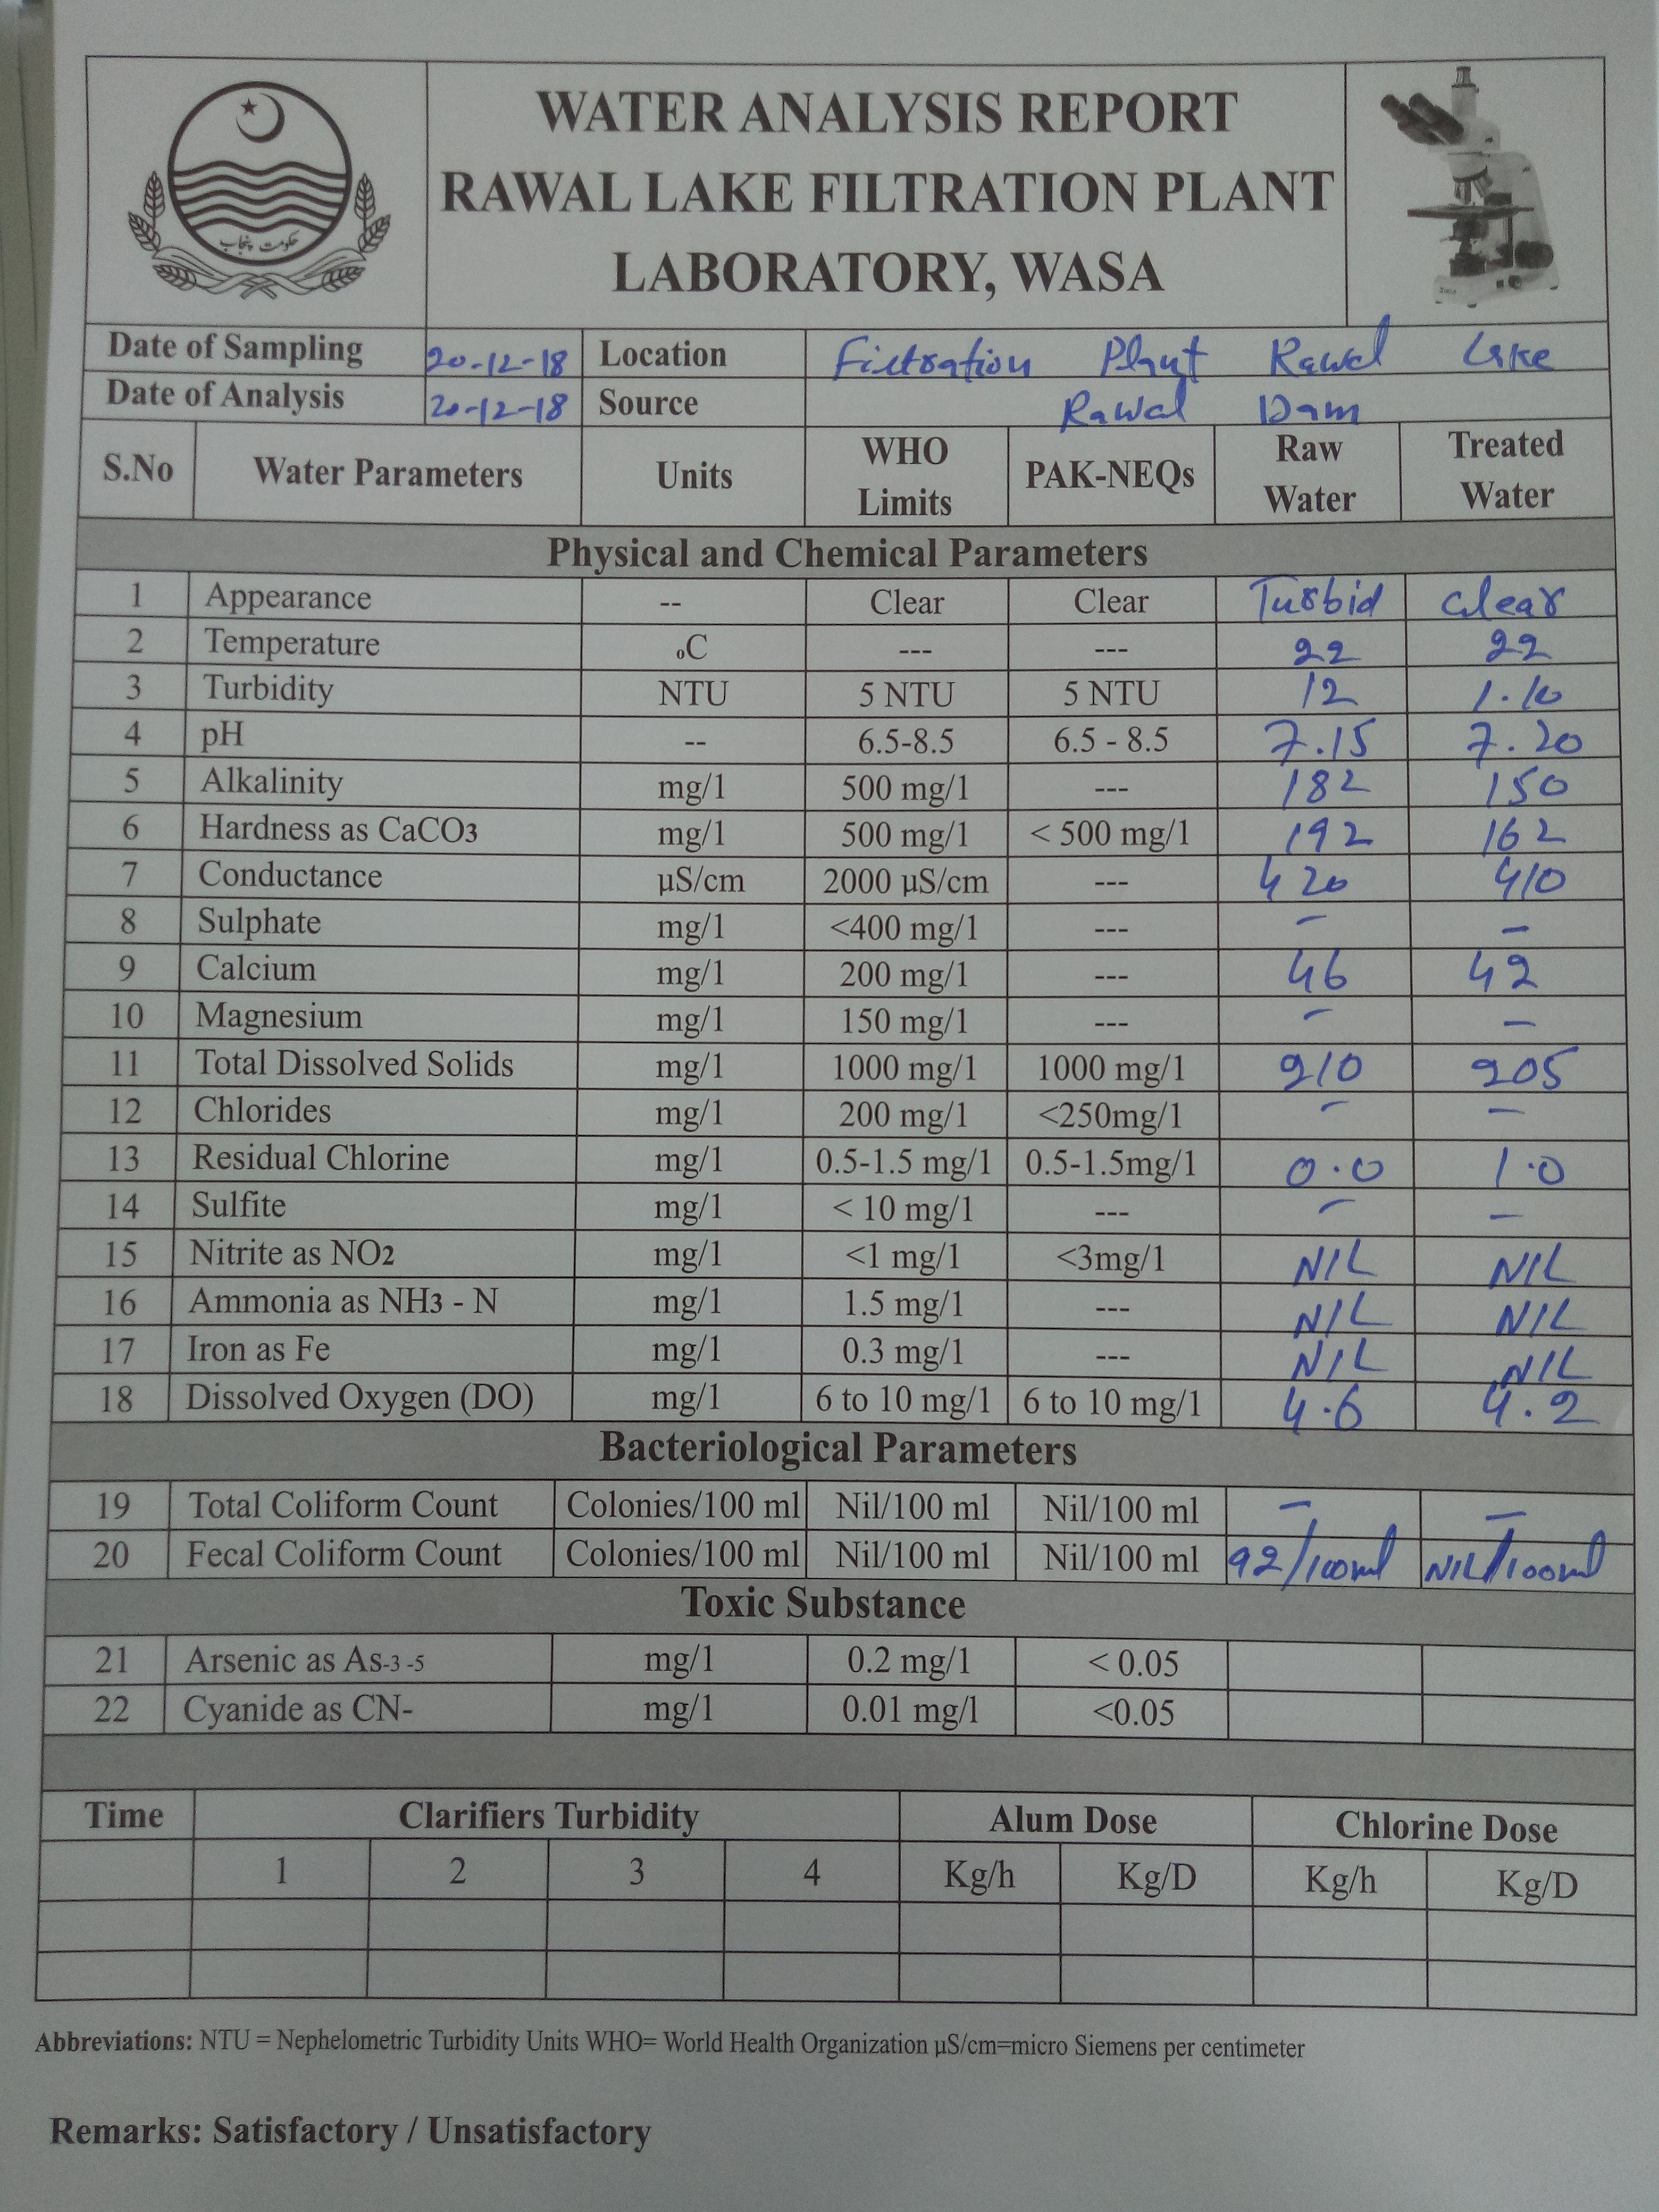 حکومت پنجاب
WATER ANALYSIS REPORT
RAWAL LAKE FILTRATION PLANT
LABORATORY, WASA
Date of Sampling 20-12-18 Location Filtration Plant Rawal Lake
Date of Analysis 20-12-18 Source Rawal Dam
S.No Water Parameters Units WHO Limits PAK-NEQs Raw Water Treated Water
Physical and Chemical Parameters
1 Appearance -- Clear Clear Turbid Clear
2 Temperature oC --- --- 22 22
3 Turbidity NTU 5 NTU 5 NTU 12 1.10
4 pH -- 6.5-8.5 6.5 - 8.5 7.15 7.20
5 Alkalinity mg/l 500 mg/l --- 182 150
6 Hardness as CaCO3 mg/l 500 mg/l < 500 mg/l 192 162
7 Conductance µS/cm 2000 µS/cm --- 420 410
8 Sulphate mg/l <400 mg/l --- - -
9 Calcium mg/l 200 mg/l --- 46 42
10 Magnesium mg/l 150 mg/l --- - -
11 Total Dissolved Solids mg/l 1000 mg/l 1000 mg/l 210 205
12 Chlorides mg/l 200 mg/l <250mg/l - -
13 Residual Chlorine mg/l 0.5-1.5 mg/l 0.5-1.5mg/l 0.0 1.0
14 Sulfite mg/l < 10 mg/l --- - -
15 Nitrite as NO2 mg/l <1 mg/l <3mg/l NIL NIL
16 Ammonia as NH3 - N mg/l 1.5 mg/l --- NIL NIL
17 Iron as Fe mg/l 0.3 mg/l --- NIL NIL
18 Dissolved Oxygen (DO) mg/l 6 to 10 mg/l 6 to 10 mg/l 4.6 4.2
Bacteriological Parameters
19 Total Coliform Count Colonies/100 ml Nil/100 ml Nil/100 ml - -
20 Fecal Coliform Count Colonies/100 ml Nil/100 ml Nil/100 ml 92/100ml NIL/100ml
Toxic Substance
21 Arsenic as As-3 -5 mg/l 0.2 mg/l < 0.05
22 Cyanide as CN- mg/l 0.01 mg/l <0.05
Time Clarifiers Turbidity Alum Dose Chlorine Dose
1 2 3 4 Kg/h Kg/D Kg/h Kg/D
Abbreviations: NTU = Nephelometric Turbidity Units WHO= World Health Organization µS/cm=micro Siemens per centimeter
Remarks: Satisfactory / Unsatisfactory